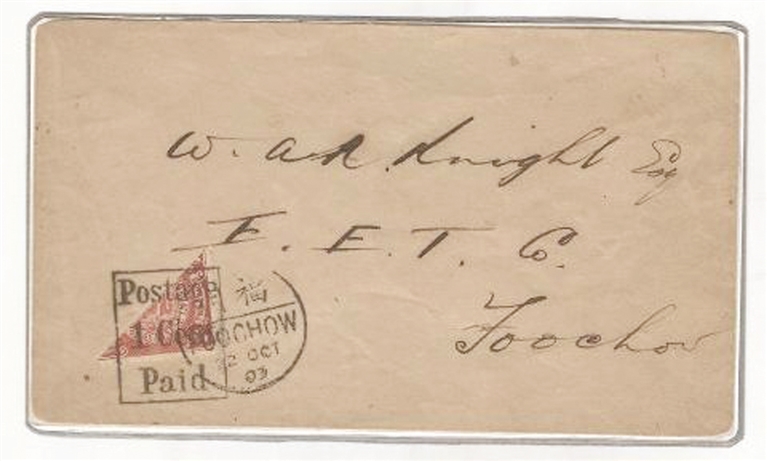 W. A. R. Knight Esq
F. E. T. Co.
Foochow
Postage
1 Cent
Paid
福
FOOCHOW
22 OCT
03